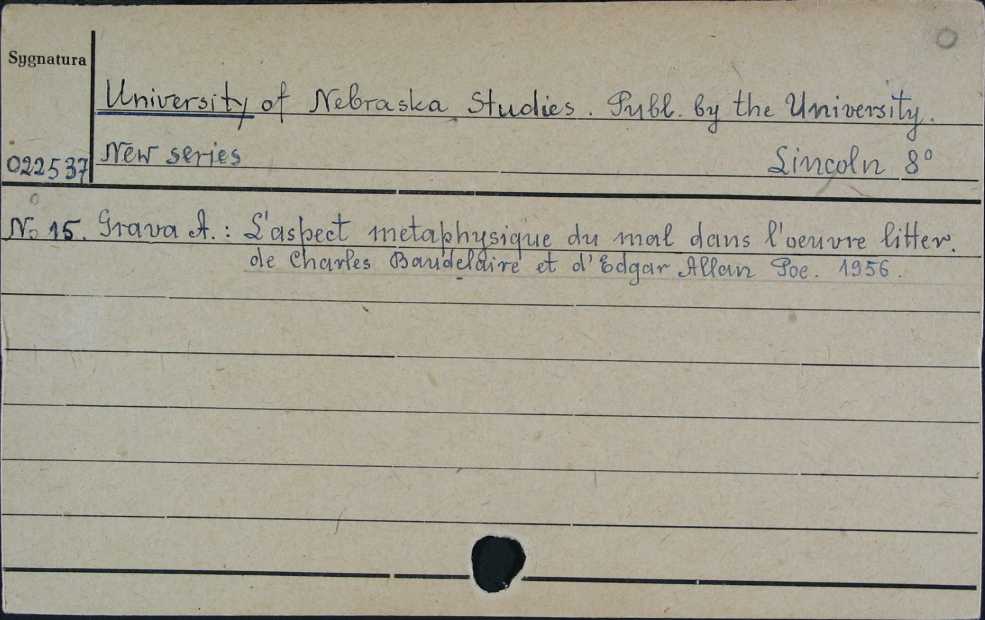 Sygnatura
University of Nebraska Studies. Publ. by the University.
022537 New series Lincoln 8°
No 15. Grava A.: L'aspect metaphysique du mal dans l'oeuvre litter.
de Charles Baudelaire et d'Edgar Allan Poe. 1956.